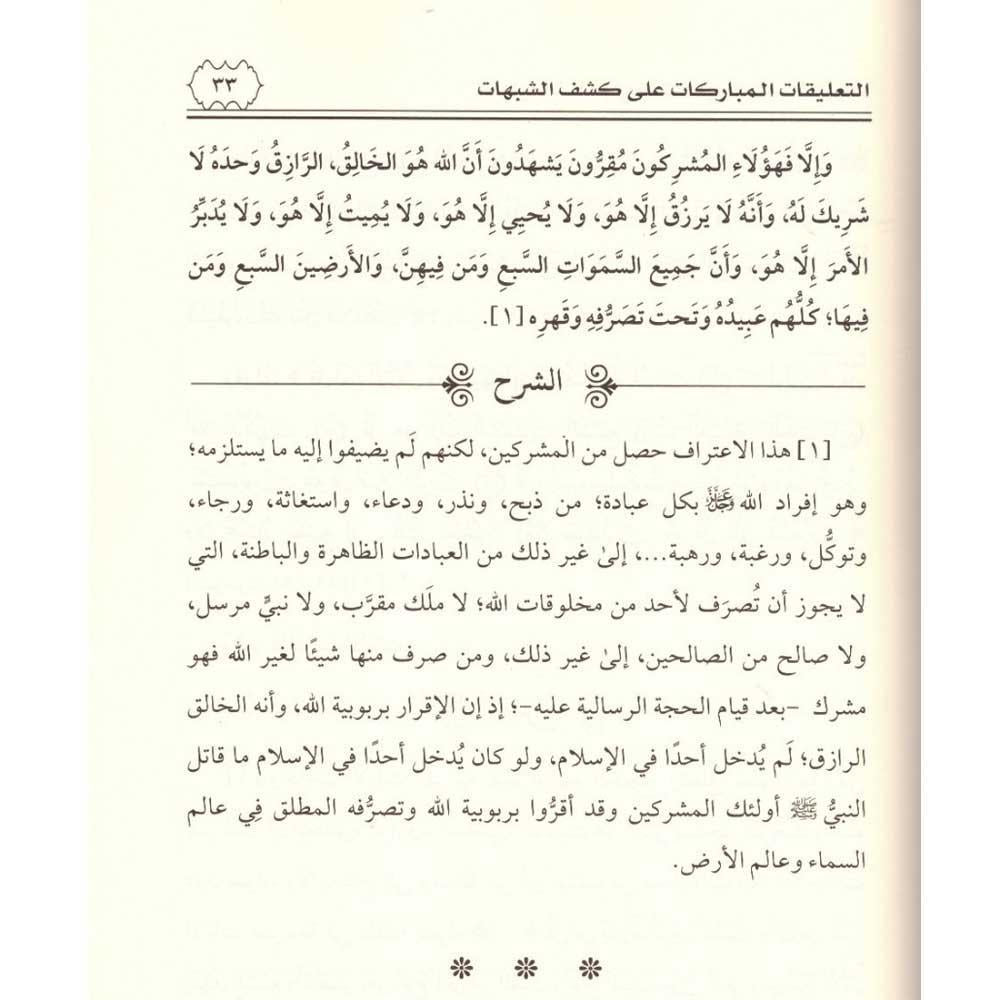 التعليقات المباركات على كشف الشبهات
٣٣
وَإِلَّا فَهَؤُلَاءِ المُشرِكُونَ مُقِرُّونَ يَشهَدُونَ أَنَّ الله هُوَ الخَالِقُ، الرَّازِقُ وَحدَهُ لَا
شَرِيكَ لَهُ، وَأَنَّهُ لَا يَرزُقُ إِلَّا هُوَ، وَلَا يُحيِي إِلَّا هُوَ، وَلَا يُمِيتُ إِلَّا هُوَ، وَلَا يُدَبِّرُ
الأَمرَ إِلَّا هُوَ، وَأَنَّ جَمِيعَ السَّمَوَاتِ السَّبعِ وَمَن فِيهِنَّ، وَالأَرضِينَ السَّبعِ وَمَن
فِيهَا؛ كُلُّهُم عَبِيدُهُ وَتَحتَ تَصَرُّفِهِ وَقَهرِه [١].
الشرح
[١] هذا الاعتراف حصل من المشركين، لكنهم لَم يضيفوا إليه ما يستلزمه؛
وهو إفراد الله عَزَّوَجَلَّ بكل عبادة؛ من ذبح، ونذر، ودعاء، واستغاثة، ورجاء،
وتوكُّل، ورغبة، ورهبة...، إلىٰ غير ذلك من العبادات الظاهرة والباطنة، التي
لا يجوز أن تُصرَف لأحد من مخلوقات الله؛ لا ملَك مقرَّب، ولا نبيٍّ مرسل،
ولا صالح من الصالحين، إلىٰ غير ذلك، ومن صرف منها شيئًا لغير الله فهو
مشرك -بعد قيام الحجة الرسالية عليه-؛ إذ إن الإقرار بربوبية الله، وأنه الخالق
الرازق؛ لَم يُدخل أحدًا في الإسلام، ولو كان يُدخل أحدًا في الإسلام ما قاتل
النبيُّ ﷺ أولئك المشركين وقد أقرُّوا بربوبية الله وتصرُّفه المطلق فِي عالم
السماء وعالم الأرض.